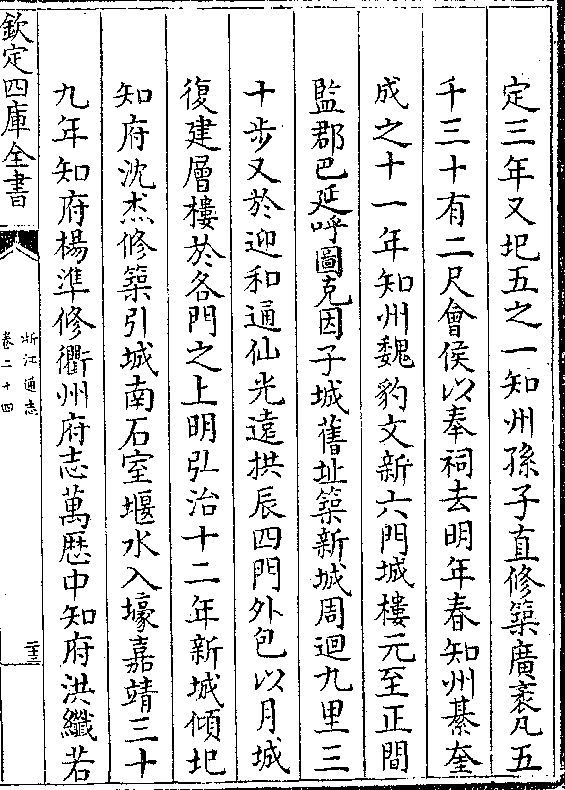 定三年又圮五之一知州孫子直修築廣袤凡五
千三十有二尺會侯以奉祠去明年春知州綦奎
成之十一年知州魏豹文新六門城樓元至正間
監郡巴延呼圖克因子城舊址築新城周迴九里三
十步又於迎和通仙光遠拱辰四門外包以月城
復建層樓於各門之上明弘治十二年新城傾圮
知府沈杰修築引城南石室堰水入壕嘉靖三十
九年知府楊準修衢州府志萬歷中知府洪纖若
欽定四庫全書
浙江通志
卷二十四
二十三